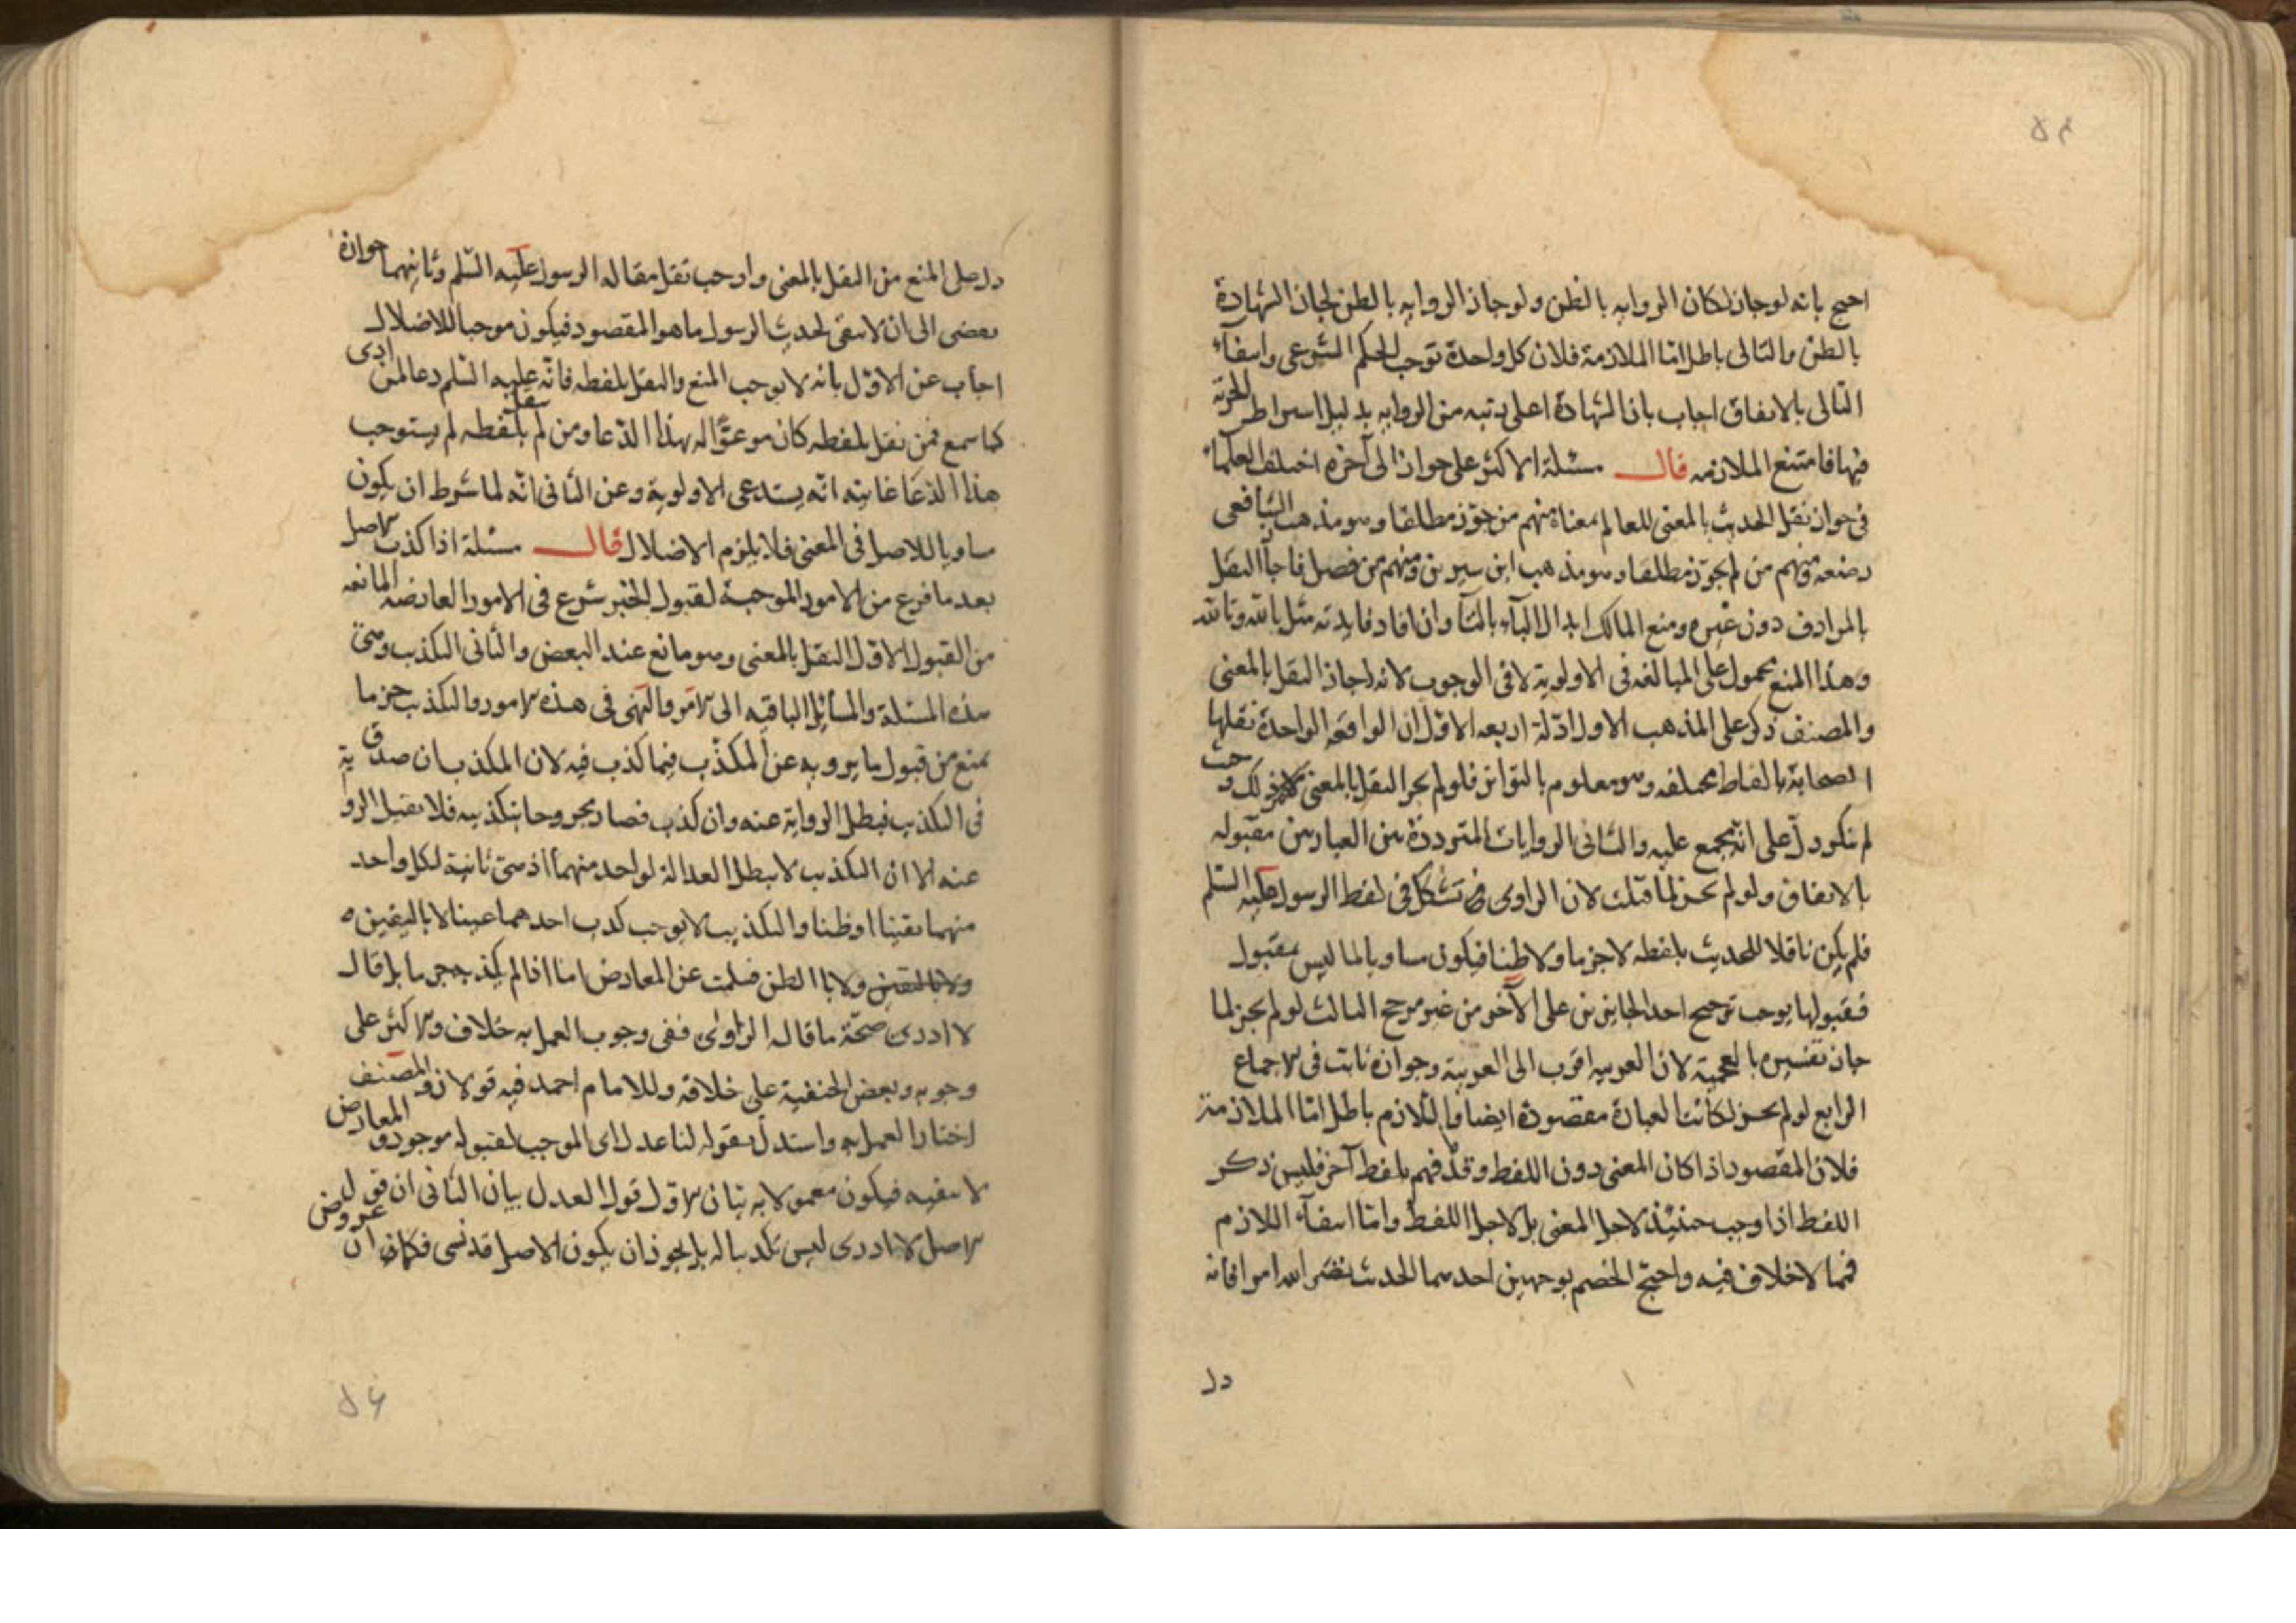 احتج بانه لو جاز لكان الروايه بالظن ولو جاز الروايه بالظن لجاز الشهادة
بالظن والتالى باطل اما الملازمة فلان كل واحدة توجب الحكم الشرعى وانتفاء
التالى بالاتفاق اجاب بان الشهادة اعلى رتبه من الروايه بدليل اشتراط الحرية
فيها فامتنع الملازمه قال مسئلة الاكثر على جواز الى آخره اختلف العلماء
فى جواز نقل الحديث بالمعنى للعالم بمعناه منهم من جوز مطلقا وهو مذهب الشافعى
رضعه ومنهم من لم يجوز مطلقا وهو مذهب ابن سيرين ومنهم من فصل فاجاز النقل
بالمرادف دون غيره ومنع المالك ابدال الباء بالتاء وان افاد فايدته مثل بالله وتالله
وهذا المنع محمول على المبالغه فى الاولوية لا فى الوجوب لانه اجاز النقل بالمعنى
والمصنف ذكر على المذهب الاول ادلة اربعه الاول ان الواقعه الواحدة نقلها
الصحابة بالفاظ مختلفه وهو معلوم بالتواتر فلو لم يجز النقل بالمعنى لانكر ذلك وحيث
لم ينكر دل على انه مجمع عليه والثانى الروايات المترددة بين العبارتين مقبوله
بالاتفاق ولو لم يجز لما قبلت لان الراوى تشكل فى لفظ الرسول عليه السلم
فلم يكن ناقلا للحديث بلفظه لا جزما ولا ظنا فيكون مساويا لما ليس بمقبول
فقبولها يوجب ترجيح احد الجايزين على الآخر من غير مرجح الثالث لو لم يجز لما
جاز تفسيره بالعجمية لان العربيه اقرب الى العربية وجوازه ثابت فى الاجماع
الرابع لو لم يجز لكانت العبارة مقصودة ايضا واللازم باطل اما الملازمة
فلان المقصود اذا كان المعنى دون اللفظ وقد فهم بلفظ آخر فليس ذكر
اللفظ اذا وجب حينئذ لاجل المعنى بل لاجل اللفظ واما انتفاء اللازم
فمما لا خلاف فيه واحتج الخصم بوجهين احدهما الحديث نضر الله امرا فانه
دل
دل على المنع من النقل بالمعنى واوجب نقل مقاله الرسول عليه السلم وثانيهما جوازه
يفضى الى ان لا يبقى لحديث الرسول ما هو المقصود فيكون موجبا للاضلال
اجاب عن الاول بانه لا يوجب المنع والنقل بلفظه فانه عليه السلم دعا لمن ادى
كما سمع فمن نقل بلفظه كان مدعوا له بهذا الدعا ومن لم ينقل بلفظه لم يستوجب
هذا الدعا غايته انه يستدعى الاولوية وعن الثانى انه لما شرط ان يكون
مساويا للاصل فى المعنى فلا يلزم الاضلال قال مسئلة اذا كذب الاصل
بعد ما فرع من الامور الموجبة لقبول الخبر شرع فى الامور العارضه المانعه
من القبول الاول النقل بالمعنى وهو مانع عند البعض والثانى التكذب ومن
هذه المسئلة والمسائل الباقيه الى الامر والنهى فى هذه الامور والتكذب جزما
يمنع من قبول ما يرويه عن المكذب فيما كذب فيه لان المكذب ان صدق
فى التكذيب فبطل الرواية عنه وان كذب فصار مجروحا بتكذيبه فلا يقبل الرواية
عنه الا ان التكذيب لا يبطل العدالة لواحد منهما اذ هى ثابتة لكل واحد
منهما يقينا او ظنا والتكذيب لا يوجب كذب احدهما عينا لا باليقين
ولا بالظن فسلمت عن المعارض اما اذا لم يكذبه جزما بل قال
لا ادرى صحة ما قاله الراوى ففى وجوب العمل به خلاف والاكثر على
وجوبه وبعض الحنفية على خلافه وللامام احمد فيه قولان والمصنف
اختار العمل به واستدل بقوله لنا عدل اى الموجب لقبوله موجود والمعارض
لا ينفيه فيكون معمولا به بيان الاول قول العدل بيان الثانى ان قول
الاصل لا ادرى ليس تكذيبا له بل يجوز ان يكون الاصل قد نسى فكان عروض